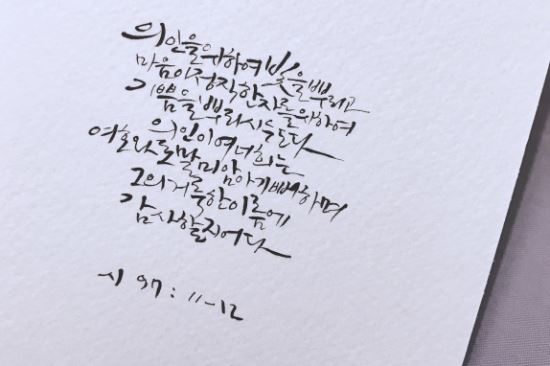 의인을위하여빛을뿌리고
마음이정직한자를위하여
기쁨을뿌리시는도다
의인이여너희는
여호와로말미암아기뻐하며
그의거룩한이름에
감사할지어다
시 97 : 11-12